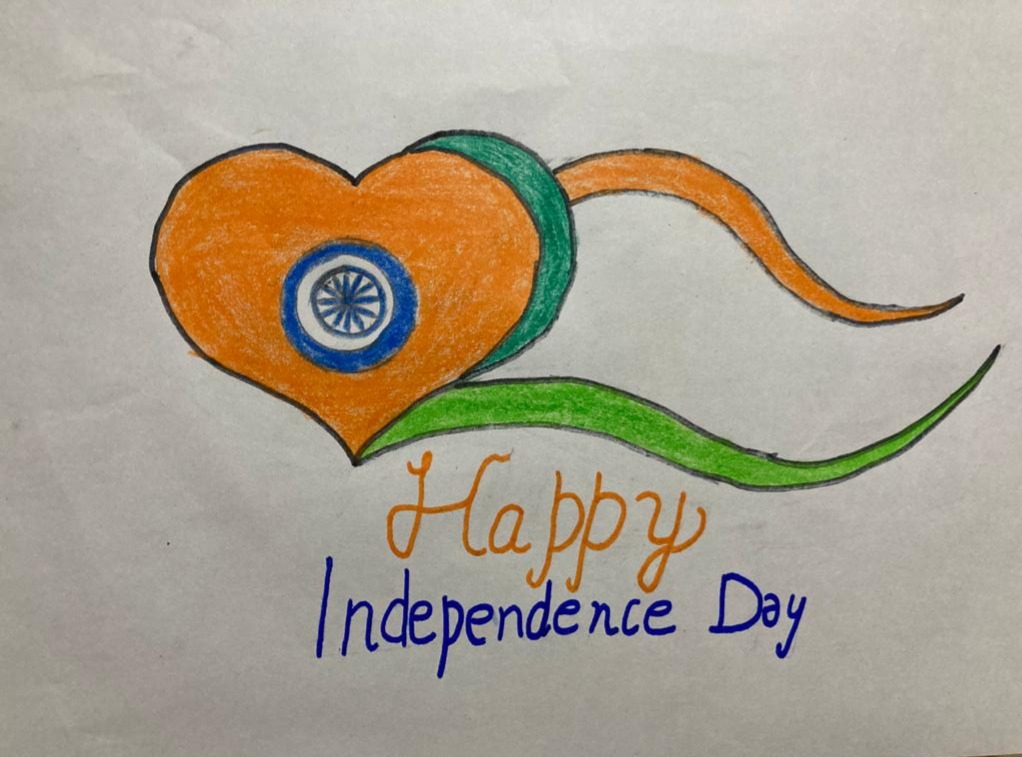 Happy
Independence Day